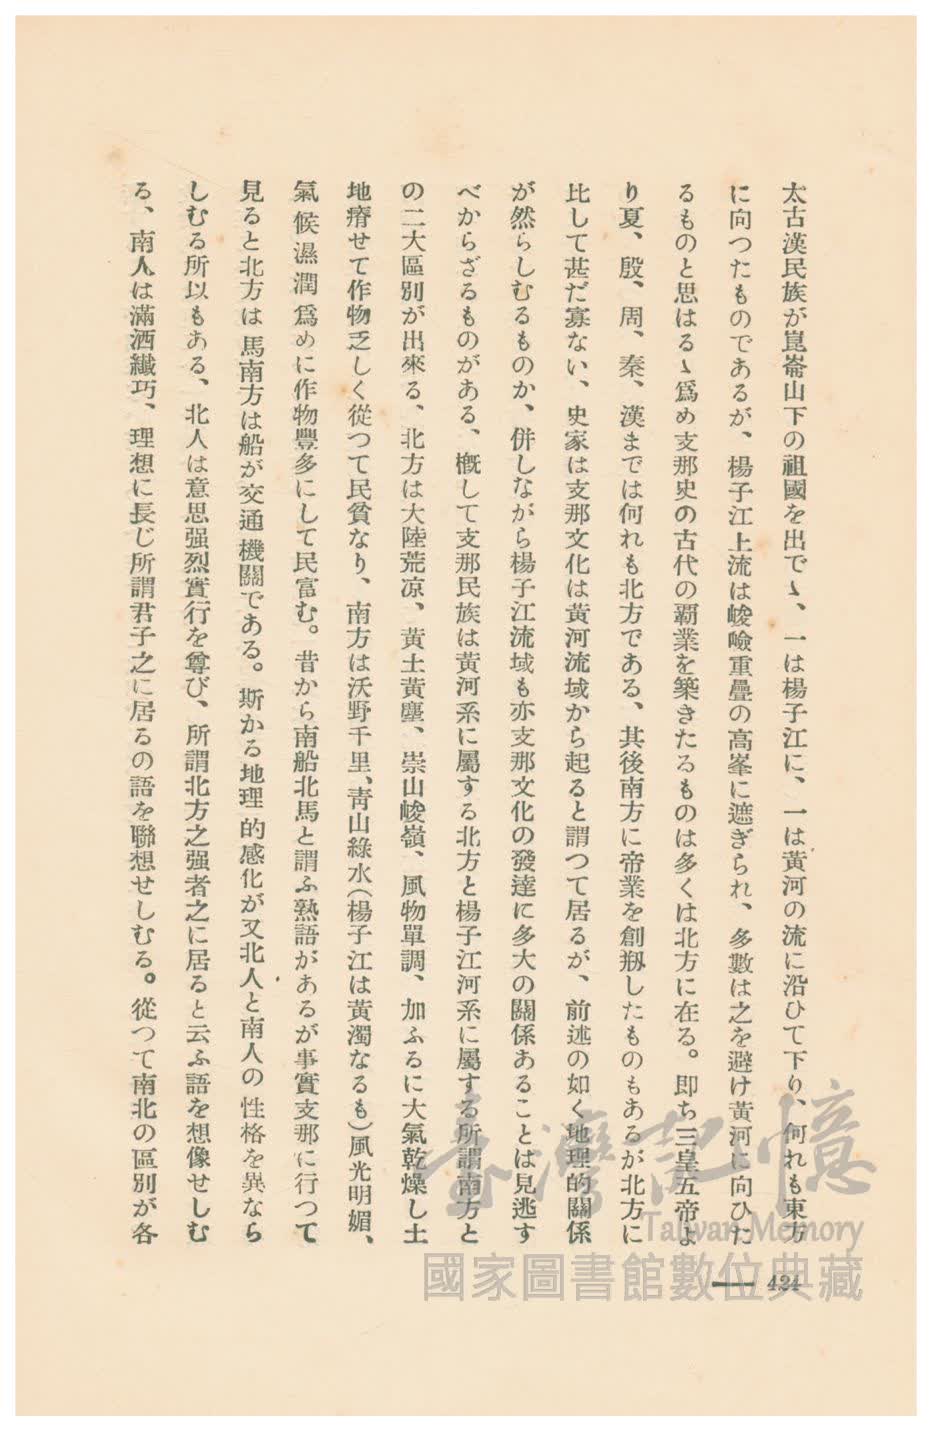 太古漢民族が崑崙山下の祖國を出でゝ、一は楊子江に、一は黃河の流に沿ひて下り、何れも東方
に向つたものであるが、楊子江上流は峻嶮重疊の高峯に遮ぎられ、多數は之を避け黃河に向ひた
るものと思はるゝ爲め支那史の古代の覇業を築きたるものは多くは北方に在る。即ち三皇五帝よ
り夏、殷、周、秦、漢までは何れも北方である、其後南方に帝業を創剏したものもあるが北方に
比して甚だ寡ない、史家は支那文化は黃河流域から起ると謂つて居るが、前述の如く地理的關係
が然らしむるものか、併しながら楊子江流域も亦支那文化の發達に多大の關係あることは見逃す
べからざるものがある、槪して支那民族は黃河系に屬する北方と楊子江河系に屬する所謂南方と
の二大區別が出來る、北方は大陸荒凉、黃土黃塵、崇山峻嶺、風物單調、加ふるに大氣乾燥し土
地瘠せて作物乏しく從つて民貧なり、南方は沃野千里、靑山綠水（楊子江は黃濁なるも）風光明媚、
氣候濕潤爲めに作物豐多にして民富む。昔から南船北馬と謂ふ熟語があるが事實支那に行つて
見ると北方は馬南方は船が交通機關である。斯かる地理的感化が又北人と南人の性格を異なら
しむる所以もある、北人は意思强烈實行を尊び、所謂北方之强者之に居ると云ふ語を想像せしむ
る、南人は滿洒纖巧、理想に長じ所謂君子之に居るの語を聯想せしむる。從つて南北の區別が各
424
臺灣記憶
Taiwan Memory
國家圖書館數位典藏